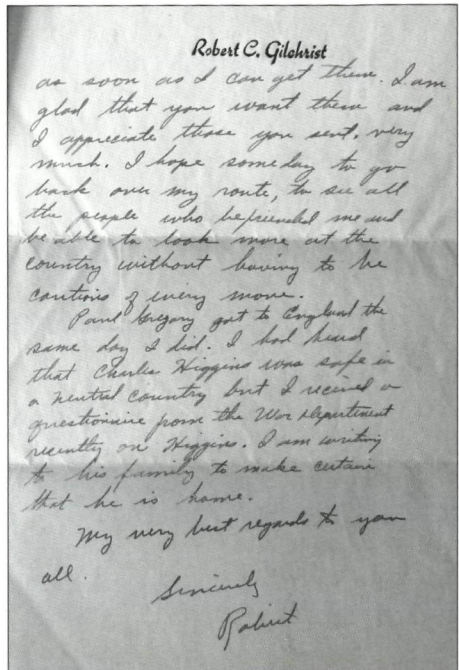 Robert C. Gilchrist
as soon as I can get them. I am
glad that you want them and
I appreciate those you sent, very
much. I hope someday to go
back over my route, to see all
the people who befriended me and
be able to look more at the
country without having to be
cautious of every move.
Paul Gregory got to England the
same day I did. I had heard
that Charlie Higgins was safe in
a neutral country but I received a
questionnaire from the War Department
recently on Higgins. I am writing
to his family to make certain
that he is home.
My very best regards to you
all.
Sincerely
Robert